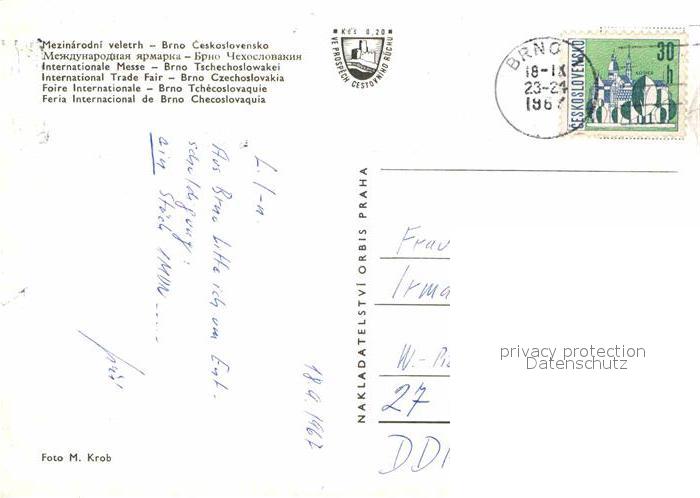 Mezinárodní veletrh – Brno Československo
Международная ярмарка – Брно Чехословакия
Internationale Messe – Brno Tschechoslowakei
International Trade Fair – Brno Czechoslovakia
Foire Internationale – Brno Tchècoslovaquie
Feria Internacional de Brno Checoslovaquia
Kčs 0,20
VE PROSPĚCH CESTOVNÍHO RUCHU
BRNO
18-IX
23-24
1967
ČESKOSLOVENSKO
30
h
Aus Brno bitte ich um Ent-
schuldigung:
ein Stück
18.9.1967
NAKLADATELSTVÍ ORBIS PRAHA
Frau
Irma
W.-Pi
27
DD
privacy protection
Datenschutz
Foto M. Krob